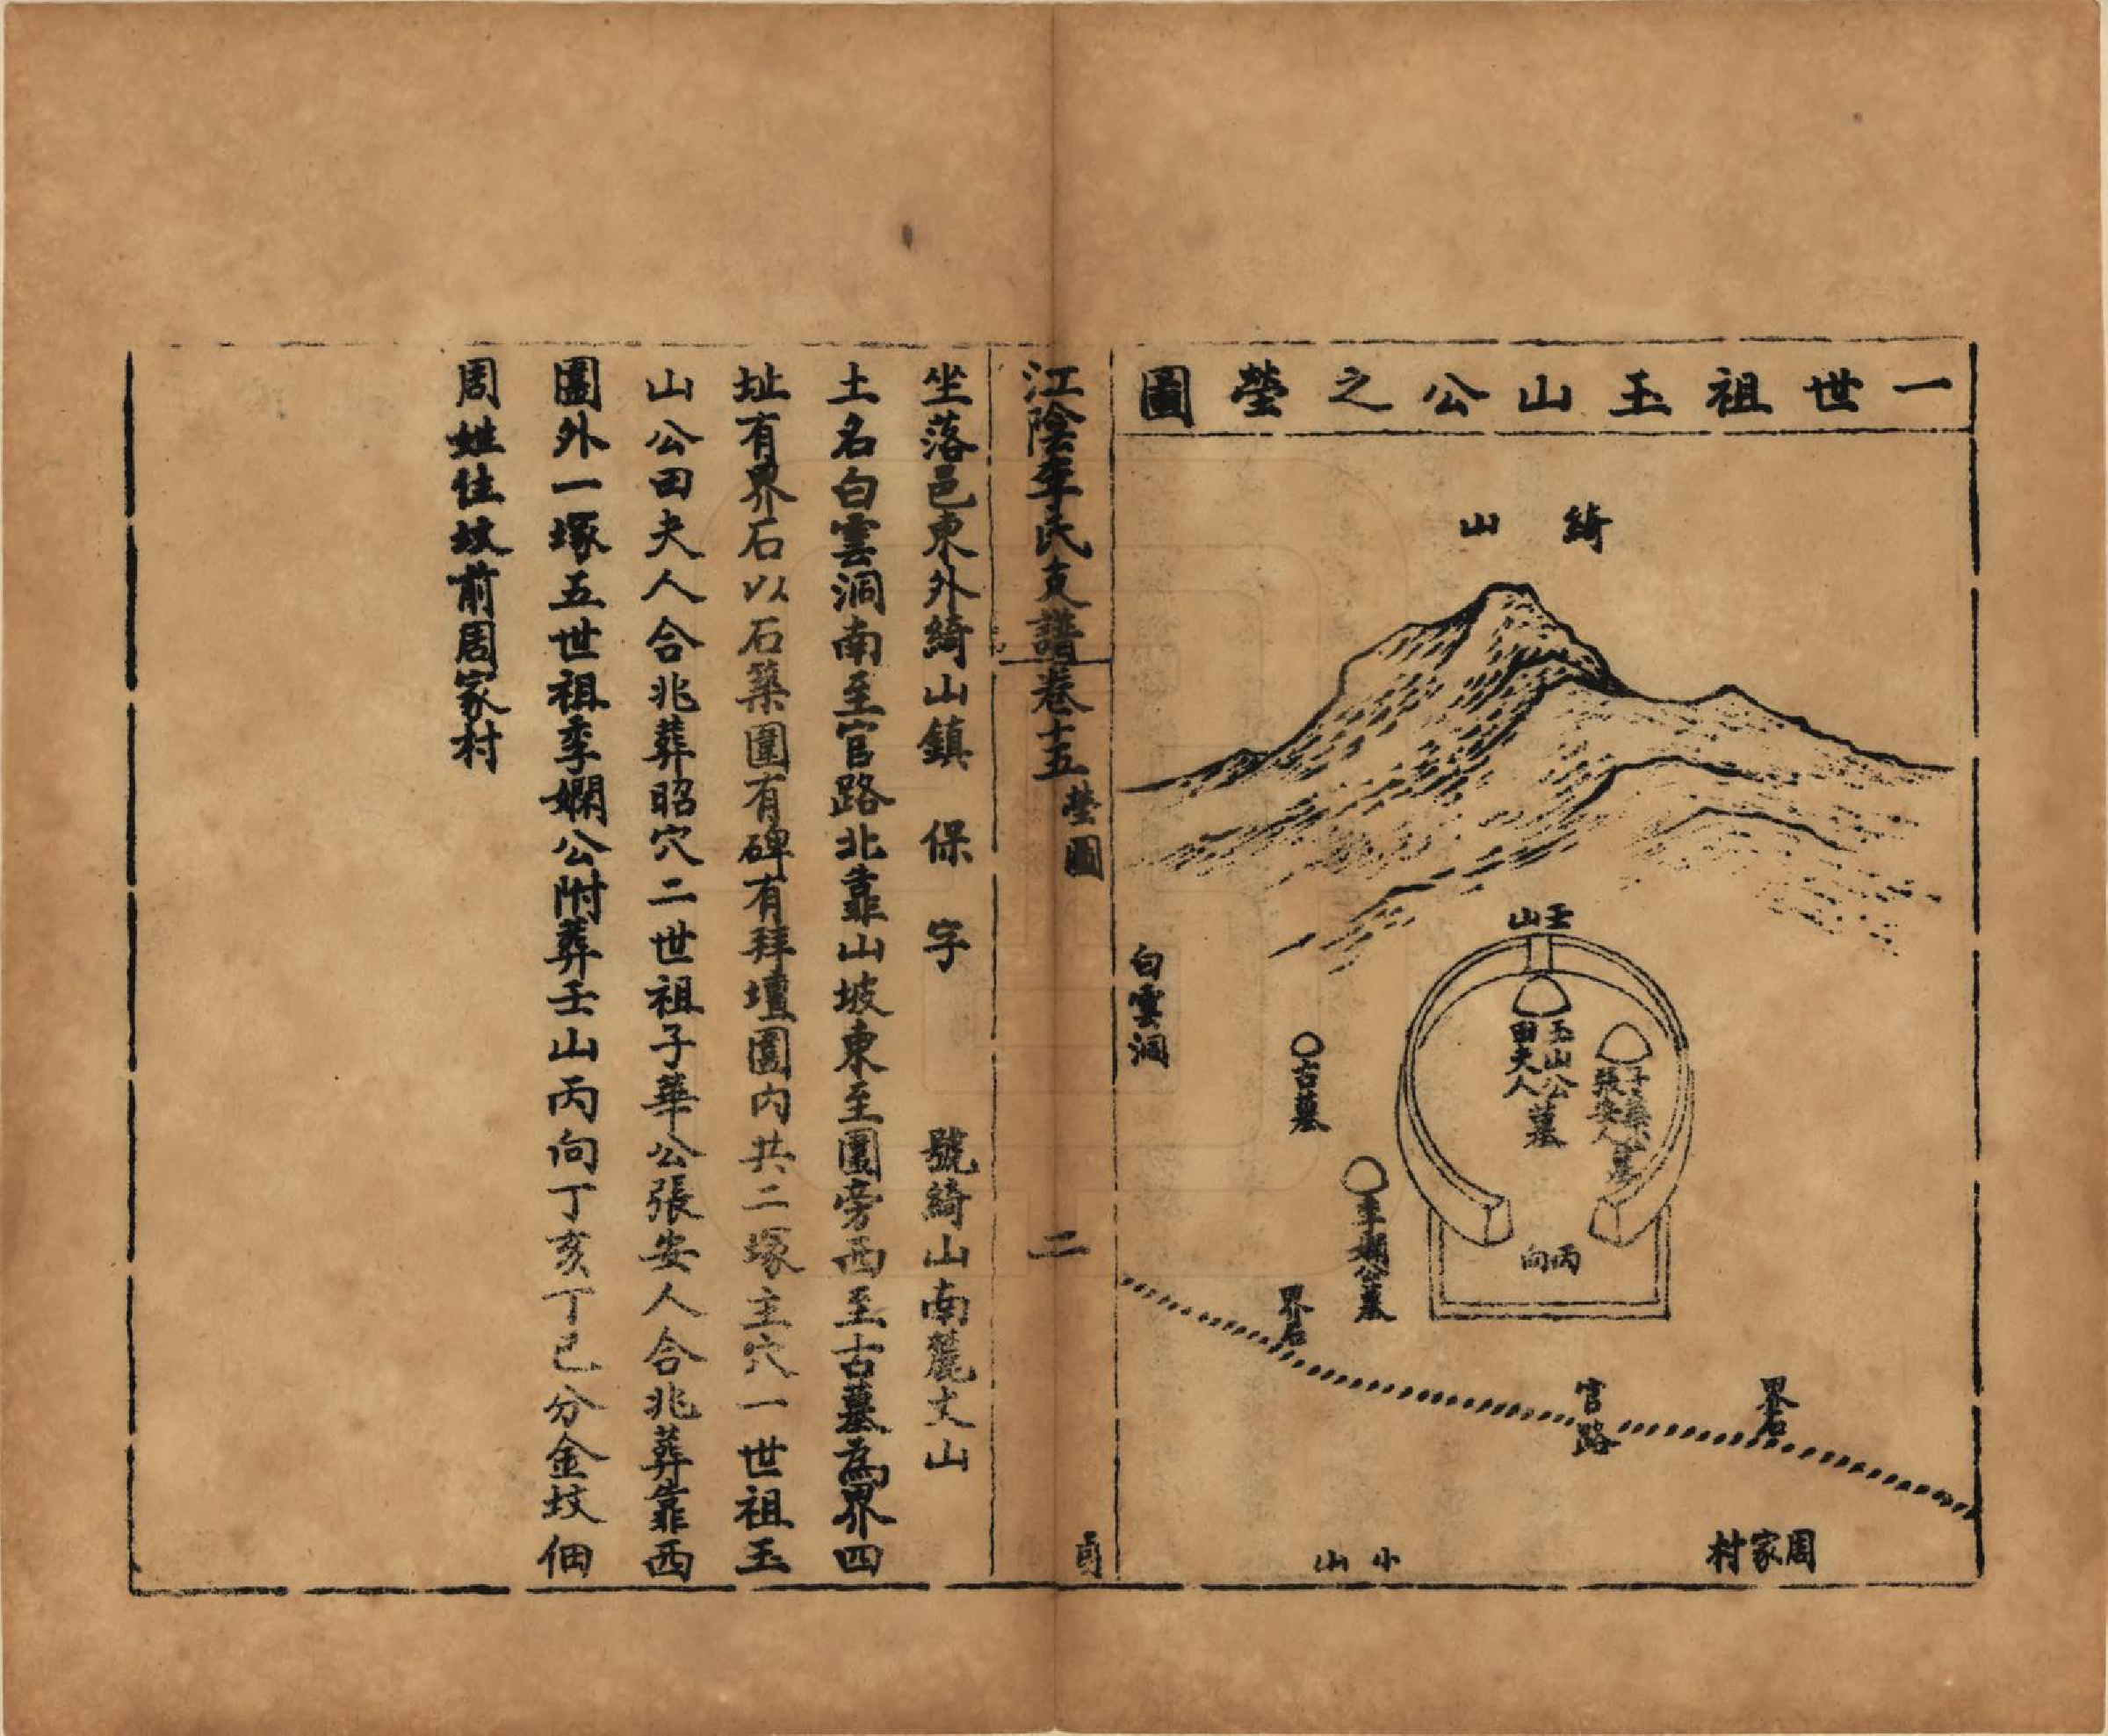 一世祖玉山公之塋圖
綺山
壬山
玉山公
田夫人
墓
子華公
張安人
墓
白雲洞
古墓
季嫻公墓
丙向
界石
官路
界石
周家村
小山
江陰李氏支譜卷十五 塋圖 二
坐落邑東外綺山鎮 保 字 號綺山南麓丈山
土名白雲洞南至官路北靠山坡東至圍旁西至古墓為界四
址有界石以石築圍有碑有拜壇圍內共二塚主穴一世祖玉
山公田夫人合兆葬昭穴二世祖子華公張安人合兆葬靠西
圍外一塚五世祖季嫻公附葬壬山丙向丁亥丁巳分金坟佃
周姓住坟前周家村